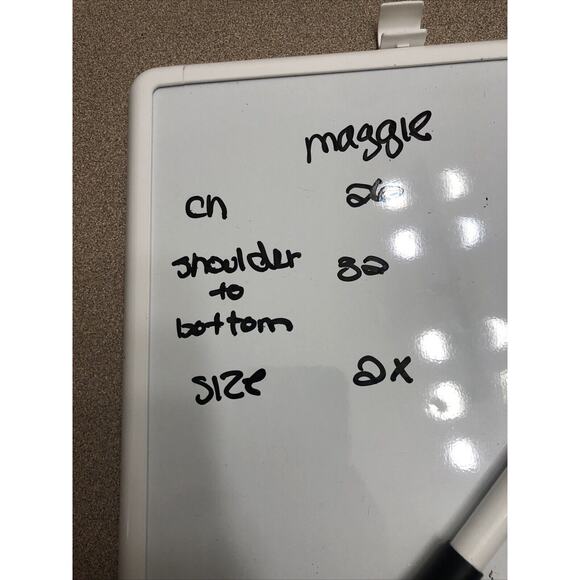 maggie
ch 26
shoulder 32
to
bottom
size 2x